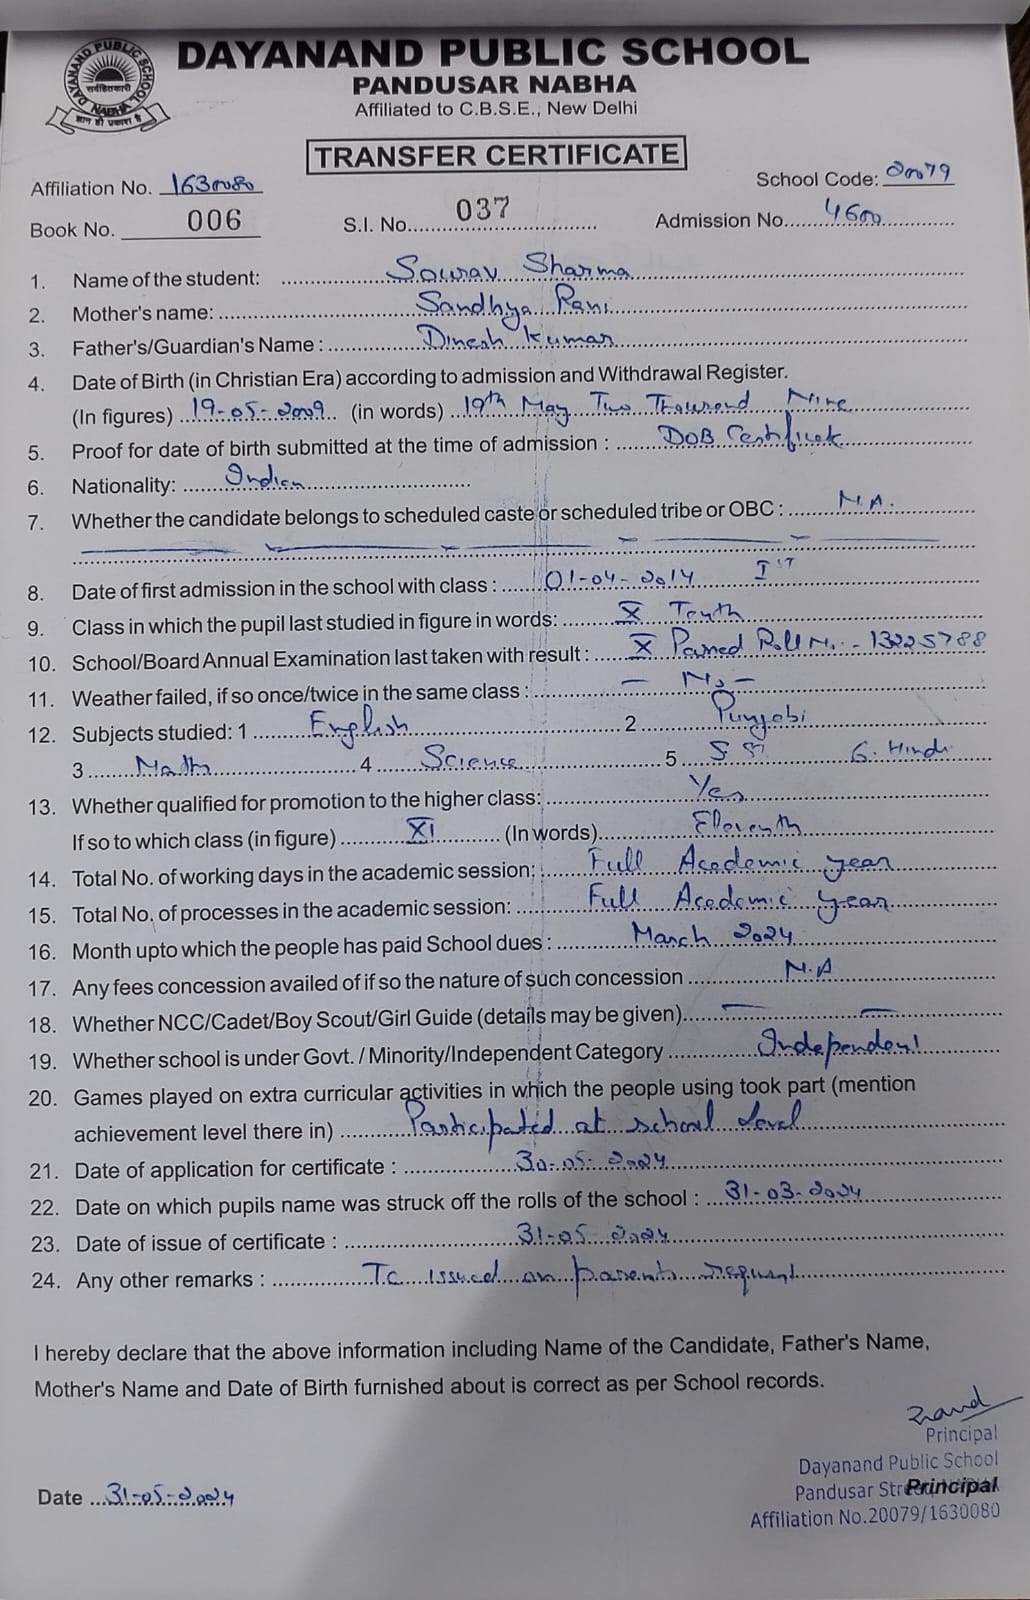 DAYANAND PUBLIC SCHOOL NABHA
सर्वहितकारी
ज्ञान ही प्रकाश है
DAYANAND PUBLIC SCHOOL
PANDUSAR NABHA
Affiliated to C.B.S.E., New Delhi
TRANSFER CERTIFICATE
Affiliation No. 1630080 School Code: 20079
Book No. 006 S.I. No. 037 Admission No. 4600
1. Name of the student: Sourav Sharma
2. Mother's name: Sandhya Rani
3. Father's/Guardian's Name : Dinesh Kumar
4. Date of Birth (in Christian Era) according to admission and Withdrawal Register.
(In figures) 19-05-2009 (in words) 19th May Two Thousand Nine
5. Proof for date of birth submitted at the time of admission : DOB Certificate
6. Nationality: Indian
7. Whether the candidate belongs to scheduled caste or scheduled tribe or OBC : N.A.
8. Date of first admission in the school with class : 01-04-2014 IST
9. Class in which the pupil last studied in figure in words: X Tenth
10. School/Board Annual Examination last taken with result : X Passed Roll No. - 13225788
11. Weather failed, if so once/twice in the same class : - No -
12. Subjects studied: 1 English 2 Punjabi
3 Math 4 Science 5 S St 6. Hindi
13. Whether qualified for promotion to the higher class: Yes
If so to which class (in figure) XI (In words) Eleventh
14. Total No. of working days in the academic session: Full Academic year
15. Total No. of processes in the academic session: Full Academic year
16. Month upto which the people has paid School dues : March 2024
17. Any fees concession availed of if so the nature of such concession N.A
18. Whether NCC/Cadet/Boy Scout/Girl Guide (details may be given) — —
19. Whether school is under Govt. / Minority/Independent Category Independent
20. Games played on extra curricular activities in which the people using took part (mention
achievement level there in) Participated at school level
21. Date of application for certificate : 30-05-2024
22. Date on which pupils name was struck off the rolls of the school : 31-03-2024
23. Date of issue of certificate : 31-05-2024
24. Any other remarks : Tc issued on parents request
I hereby declare that the above information including Name of the Candidate, Father's Name,
Mother's Name and Date of Birth furnished about is correct as per School records.
Principal
Dayanand Public School
Pandusar
Principal
Affiliation No.20079/1630080
Date 31-05-2024